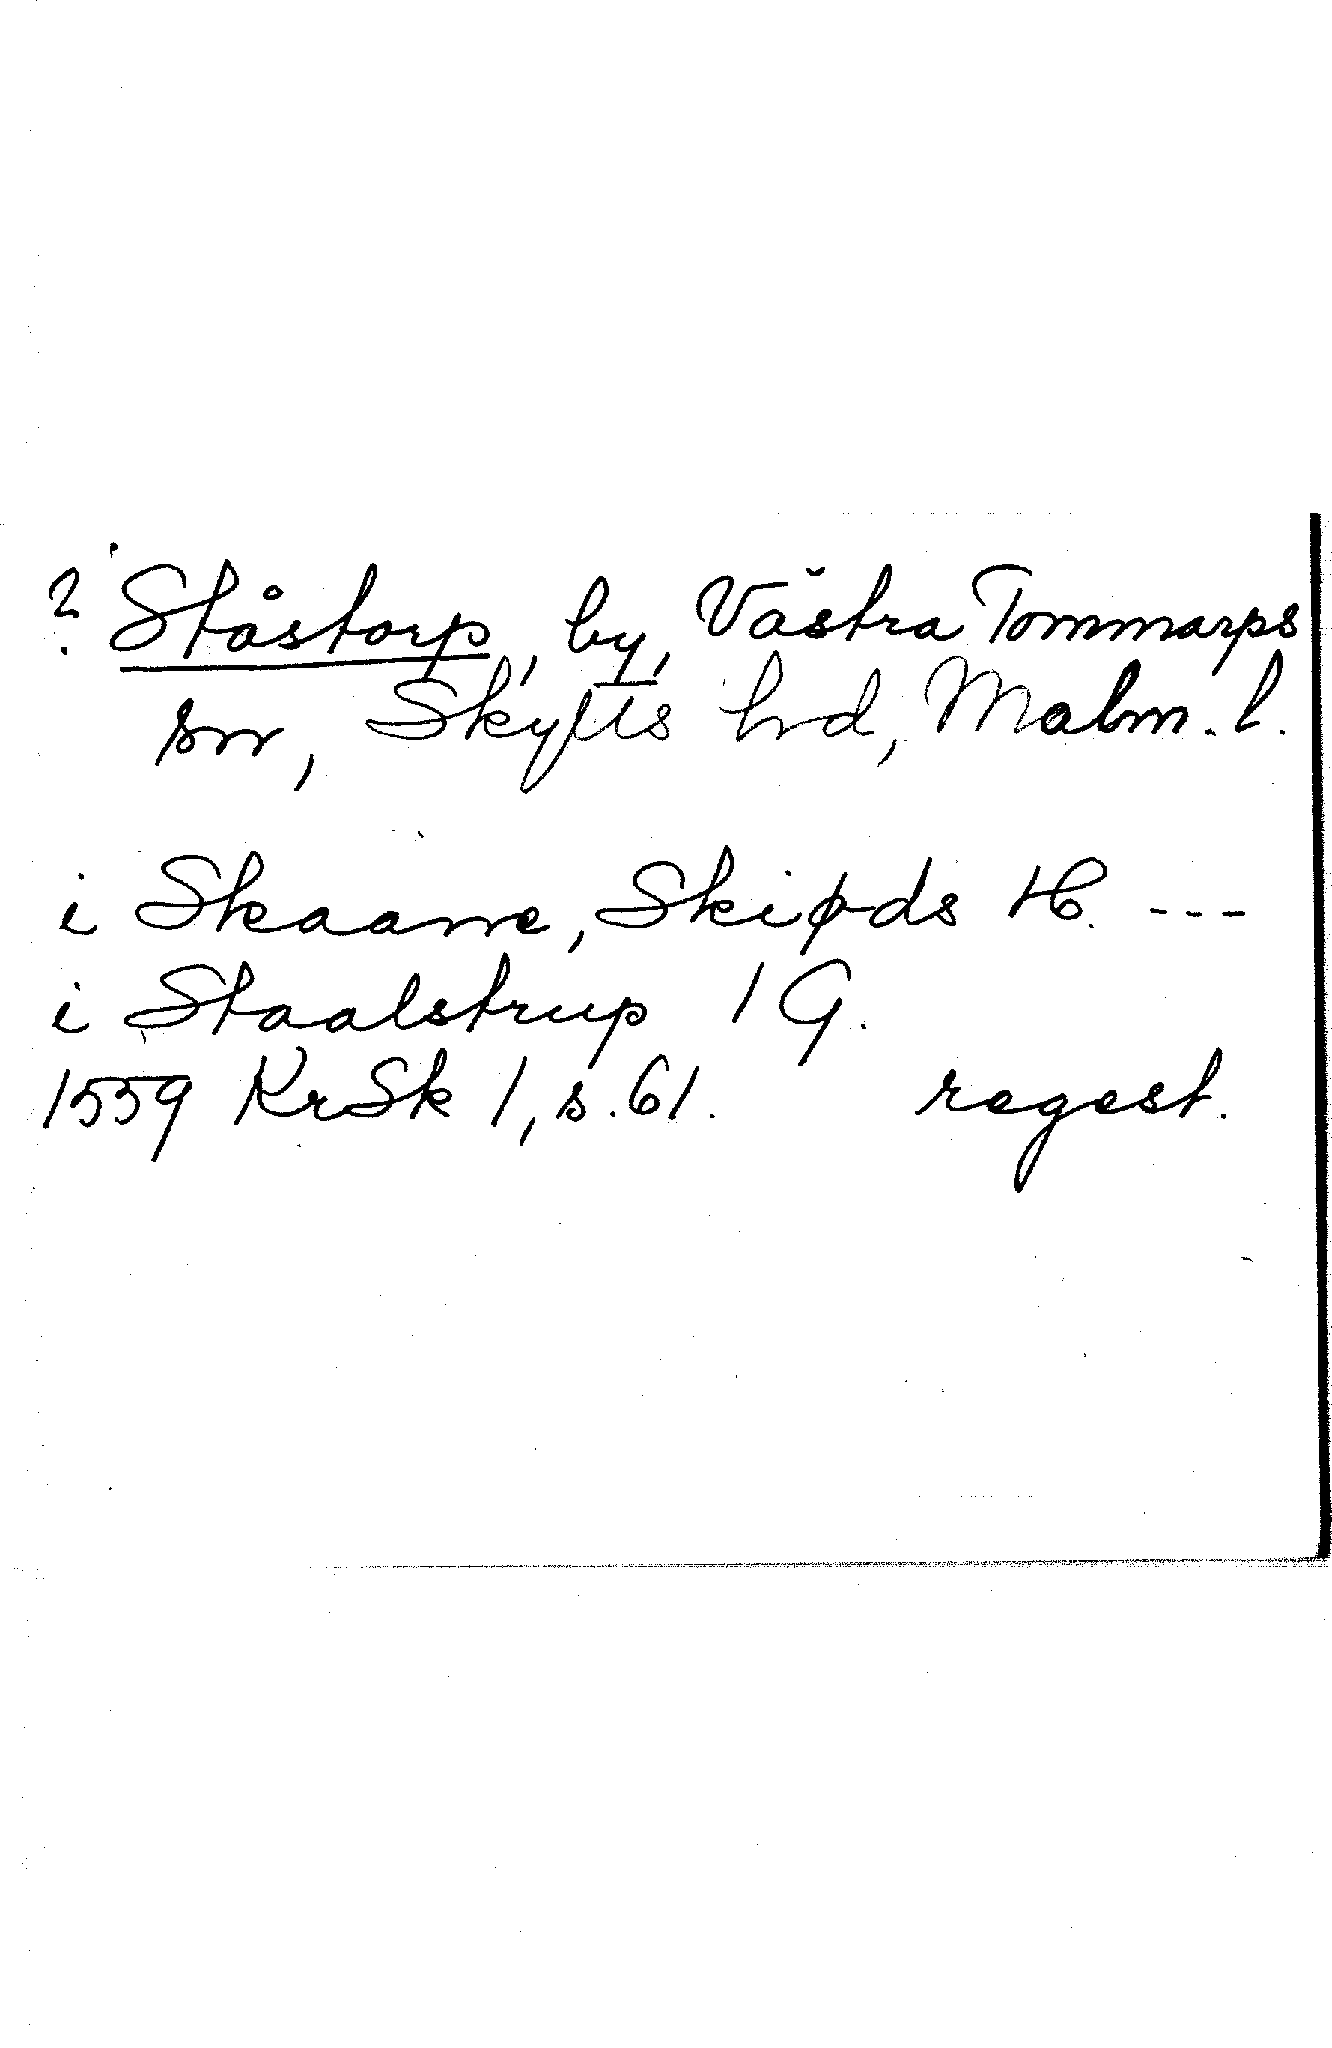 ? Ståstorp, by, Västra Tommarps
sn, Skytts hd, Malm. l.
i Skaane, Skiøds H. ---
i Staalstrup 1 G.
1559 KrSk 1, s. 61. regest.